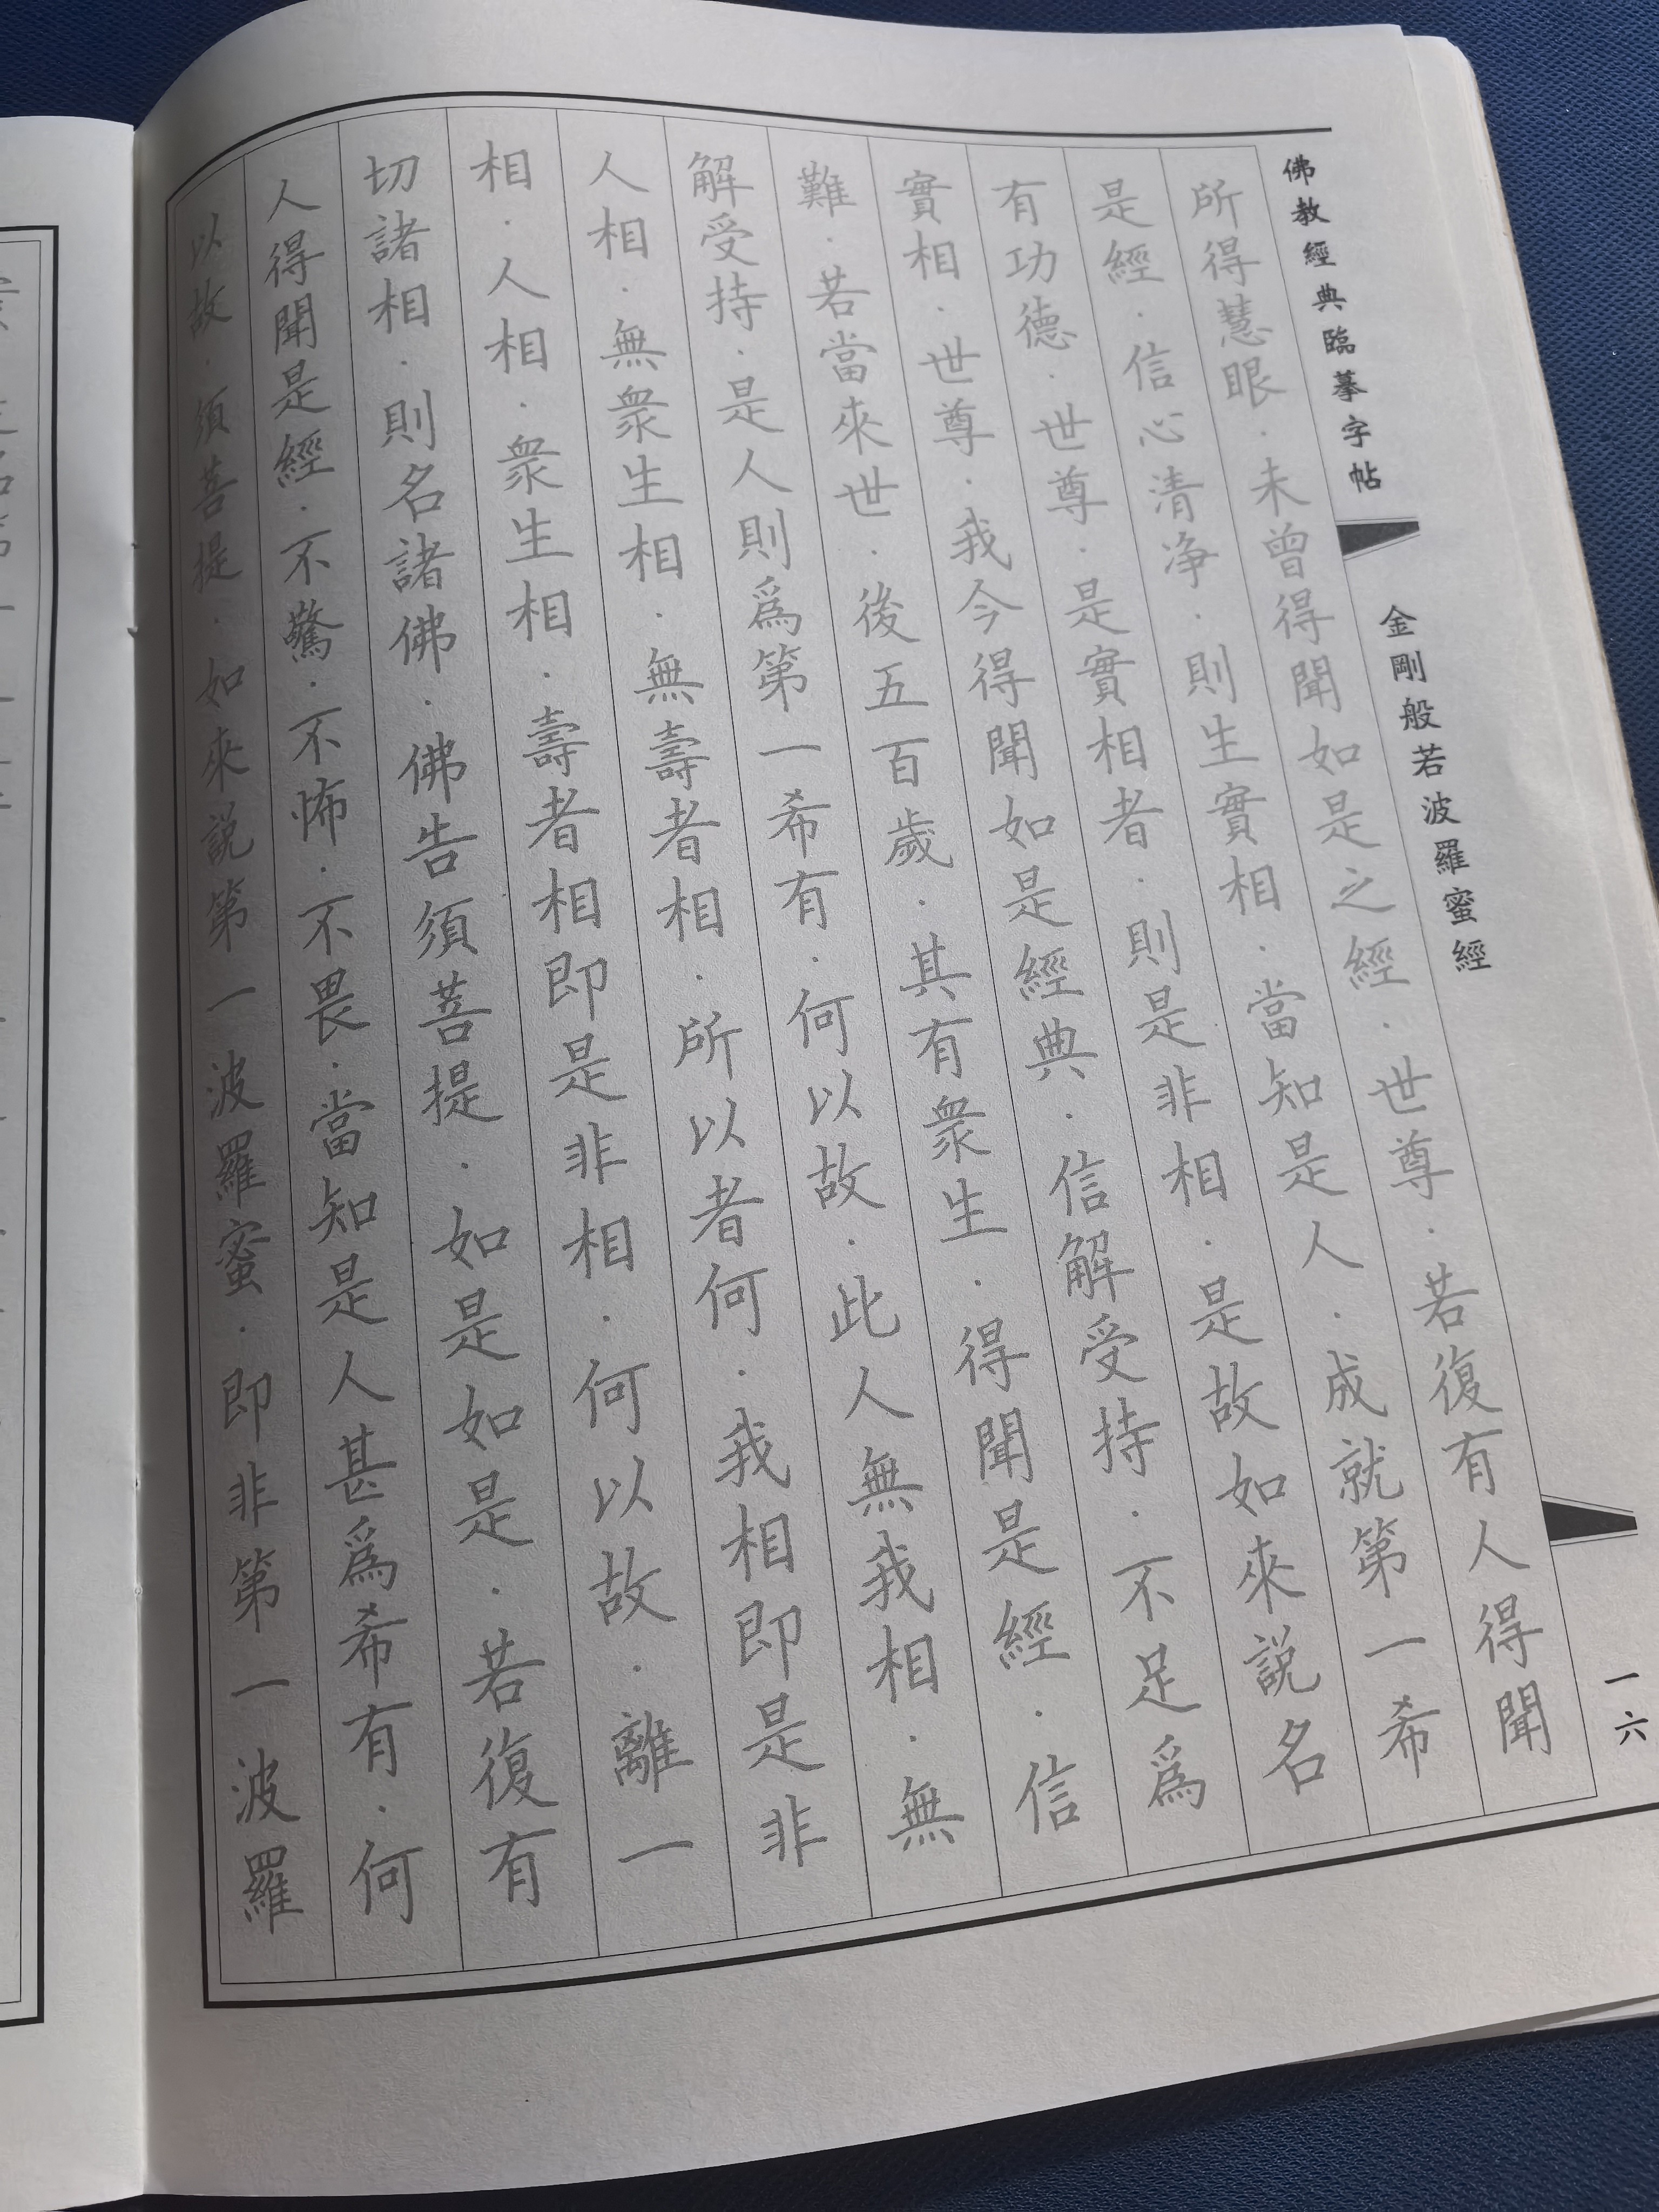 佛教經典臨摹字帖
金剛般若波羅蜜經
一六
所得慧眼·未曾得聞如是之經·世尊·若復有人得聞
是經·信心清净·則生實相·當知是人·成就第一希
有功德·世尊·是實相者·則是非相·是故如來説名
實相·世尊·我今得聞如是經典·信解受持·不足爲
難·若當來世·後五百歲·其有衆生·得聞是經·信
解受持·是人則爲第一希有·何以故·此人無我相·無
人相·無衆生相·無壽者相·所以者何·我相即是非
相·人相·衆生相·壽者相即是非相·何以故·離一
切諸相·則名諸佛·佛告須菩提·如是如是·若復有
人得聞是經·不驚·不怖·不畏·當知是人甚爲希有·何
以故·須菩提·如來説第一波羅蜜·即非第一波羅